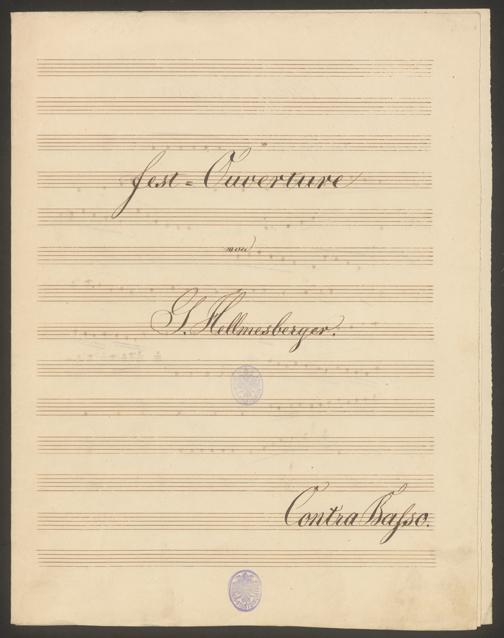 Fest=Ouverture
von
G. Hellmesberger.
Contra Baſso.